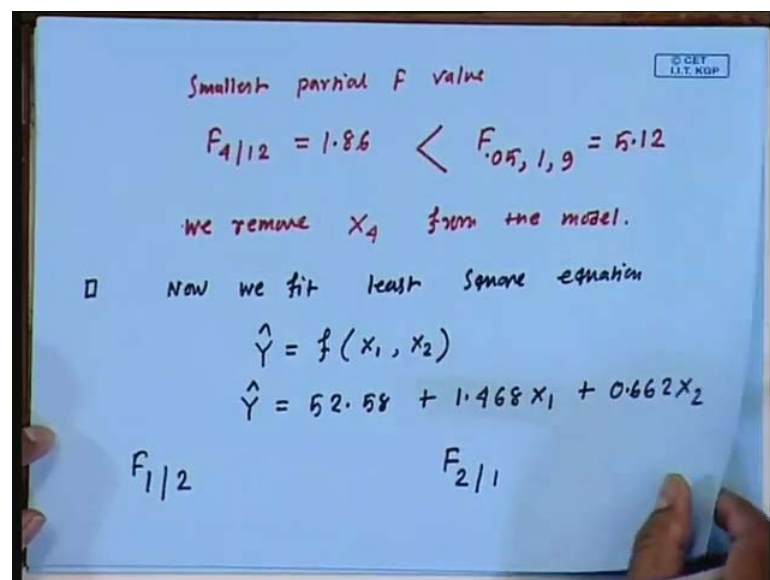 © CET
I.I.T. KGP
Smallest partial F value
F4/12 = 1.86 < F.05, 1, 9 = 5.12
we remove X4 from the model.
□ Now we fit least square equation
Ŷ = f(X1, X2)
Ŷ = 52.58 + 1.468X1 + 0.662X2
F1/2 F2/1